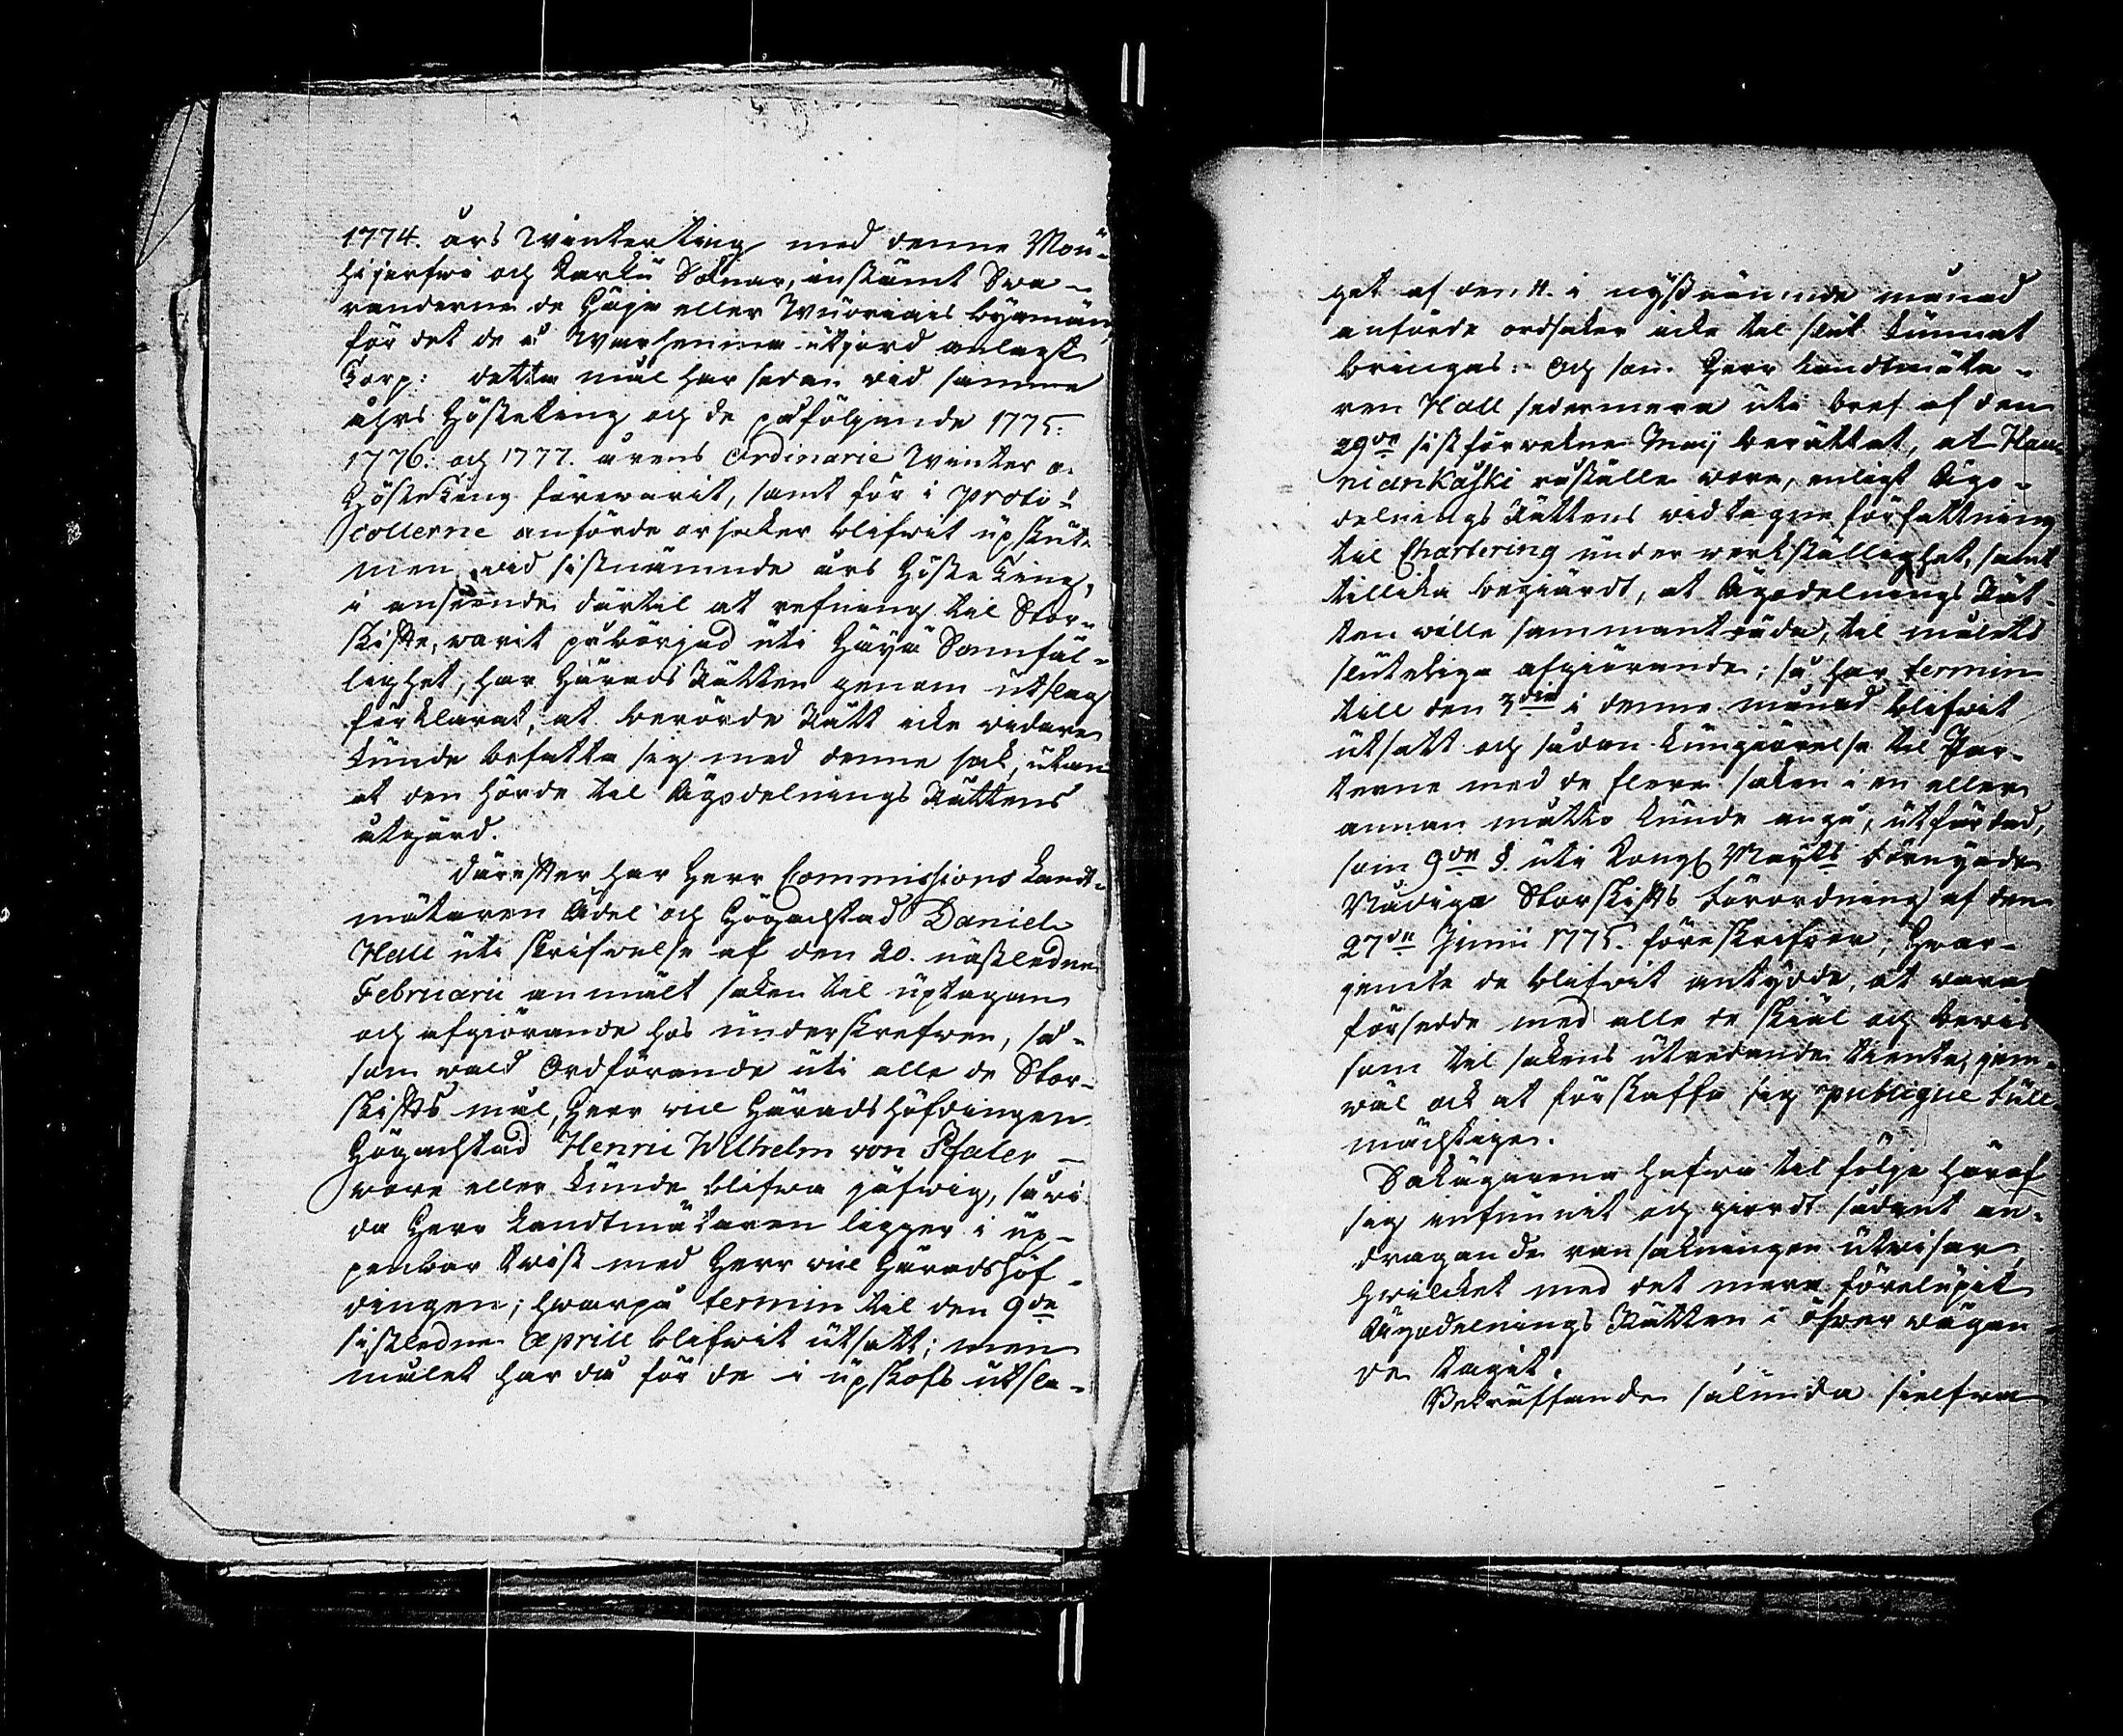 1774. års Winterting med denne Mou¬
hijerfwi och Karku Soknar, instämt Swa¬
randerne de Häjä eller Wuoriais byamän,
för det de å Warhenma utjord anlagt
Torp: detta mål har sedan wid samma
åhrs Hösteting och de påfölgande 1775.
1776. och 1777. årens Ordinarie Winter o.
Hösteting förewarit, samt för i proto¬
collerne anförde orsaker blifwit upskutit
men wid sistnämnde års Höste Ting,
i anseende dertil at refning til Stor¬
skifte, warit påbörjad uti Häyä Samfäl¬
lighet, har Härads Rätten genom utslag
förklarat, at berörde Rätt icke widare
kunde befatta sig med denne sak, utan
at den hörde til Ägodelnings Rättens
utgärd.
Därefter har Herr Commissions Landt¬
mätaren Ädel och Högachtad Daniel
Hall uti skrifwelse af den 20. nästledne
Februarii anmält saken til uptagan
och afgiörande hos underskrefwen, så¬
som wald Ordförande uti alla de Stor¬
skifts mål, Herr vice Häradshöfdingen
Högachtad Henric Wilhelm von Pfaler
wore eller kunde blifwa jäfwig, såwi¬
da Herr Landtmätaren ligger i up¬
penbar twist med Herr vice Häradshöf¬
dingen; hwarpå termin til den 9de
sistledne Aprill blifwit utsatt; men
målet har då för de i upskofs utsla¬
get af den 11. i nystnämnde månad
anförde ordsaker icke til slut kunnat
bringas: Och som Herr Landtmäta¬
ren Hall sedermera uti bref af den
29de sistförwekne Maij berättat, at Han¬
niankaski wattuställe wore, enligt Ägo¬
delnings Rättens widtagne författning
til Chartering under werkställighet, samt
tillika begiärdt, at Ägodelnings Rät¬
ten wille sammanträda, til målets
sluteliga afgiörande; så har termin
till den 3die i denne månad blifwit
utsatt och sådan kungiörelse til Par¬
terne med de flera saken i en eller
annan måtto kunde angå, utfärdad,
som 9de §. uti Kongl Mayts förnyade
Nådiga Storskifts förordning af den
27de Junii 1775. föreskrifwer; Hwar¬
jemte de blifwit antydde, at wara
försedde med alla de skiäl och bewis
som til sakens utredande tiente, jem¬
wäl ock at förskaffa sig publique full¬
mächtige.
Sakägarena hafwa til följe häraf
sig infunnit och giordt sådant an¬
dragande ransakningen utwisar,
hwilcket med det mera förelupit
Ägodelnings Rätten i öfwer wägan
de tagit.
Bekräffande sålunda sielfwa